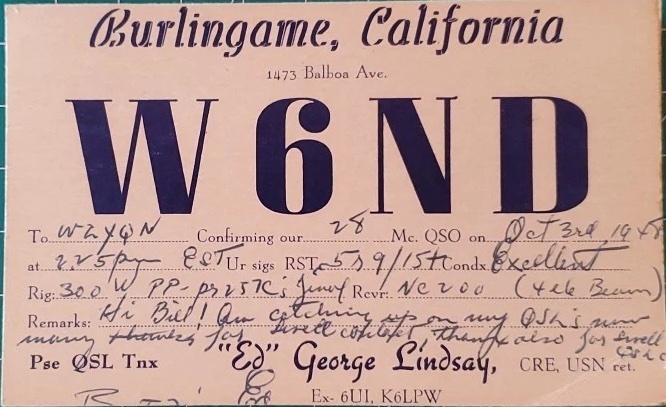 Burlingame, California
1473 Balboa Ave.
W6ND
To W2YQN Confirming our 28 Mc. QSO on Oct 3rd, 1948
at 2.25pm EST Ur sigs RST 5 9/15+ Condx Excellent
Rig: 300 W PP- Rcvr: NC200 (4 ele Beam)
Remarks: Hi Bill! Am catching up on my QSL's now
many thanks, for swell contact, thanx also for swell
QSL
Pse QSL Tnx "Ed" George Lindsay, CRE, USN ret.
Ed
Ex- 6UI, K6LPW